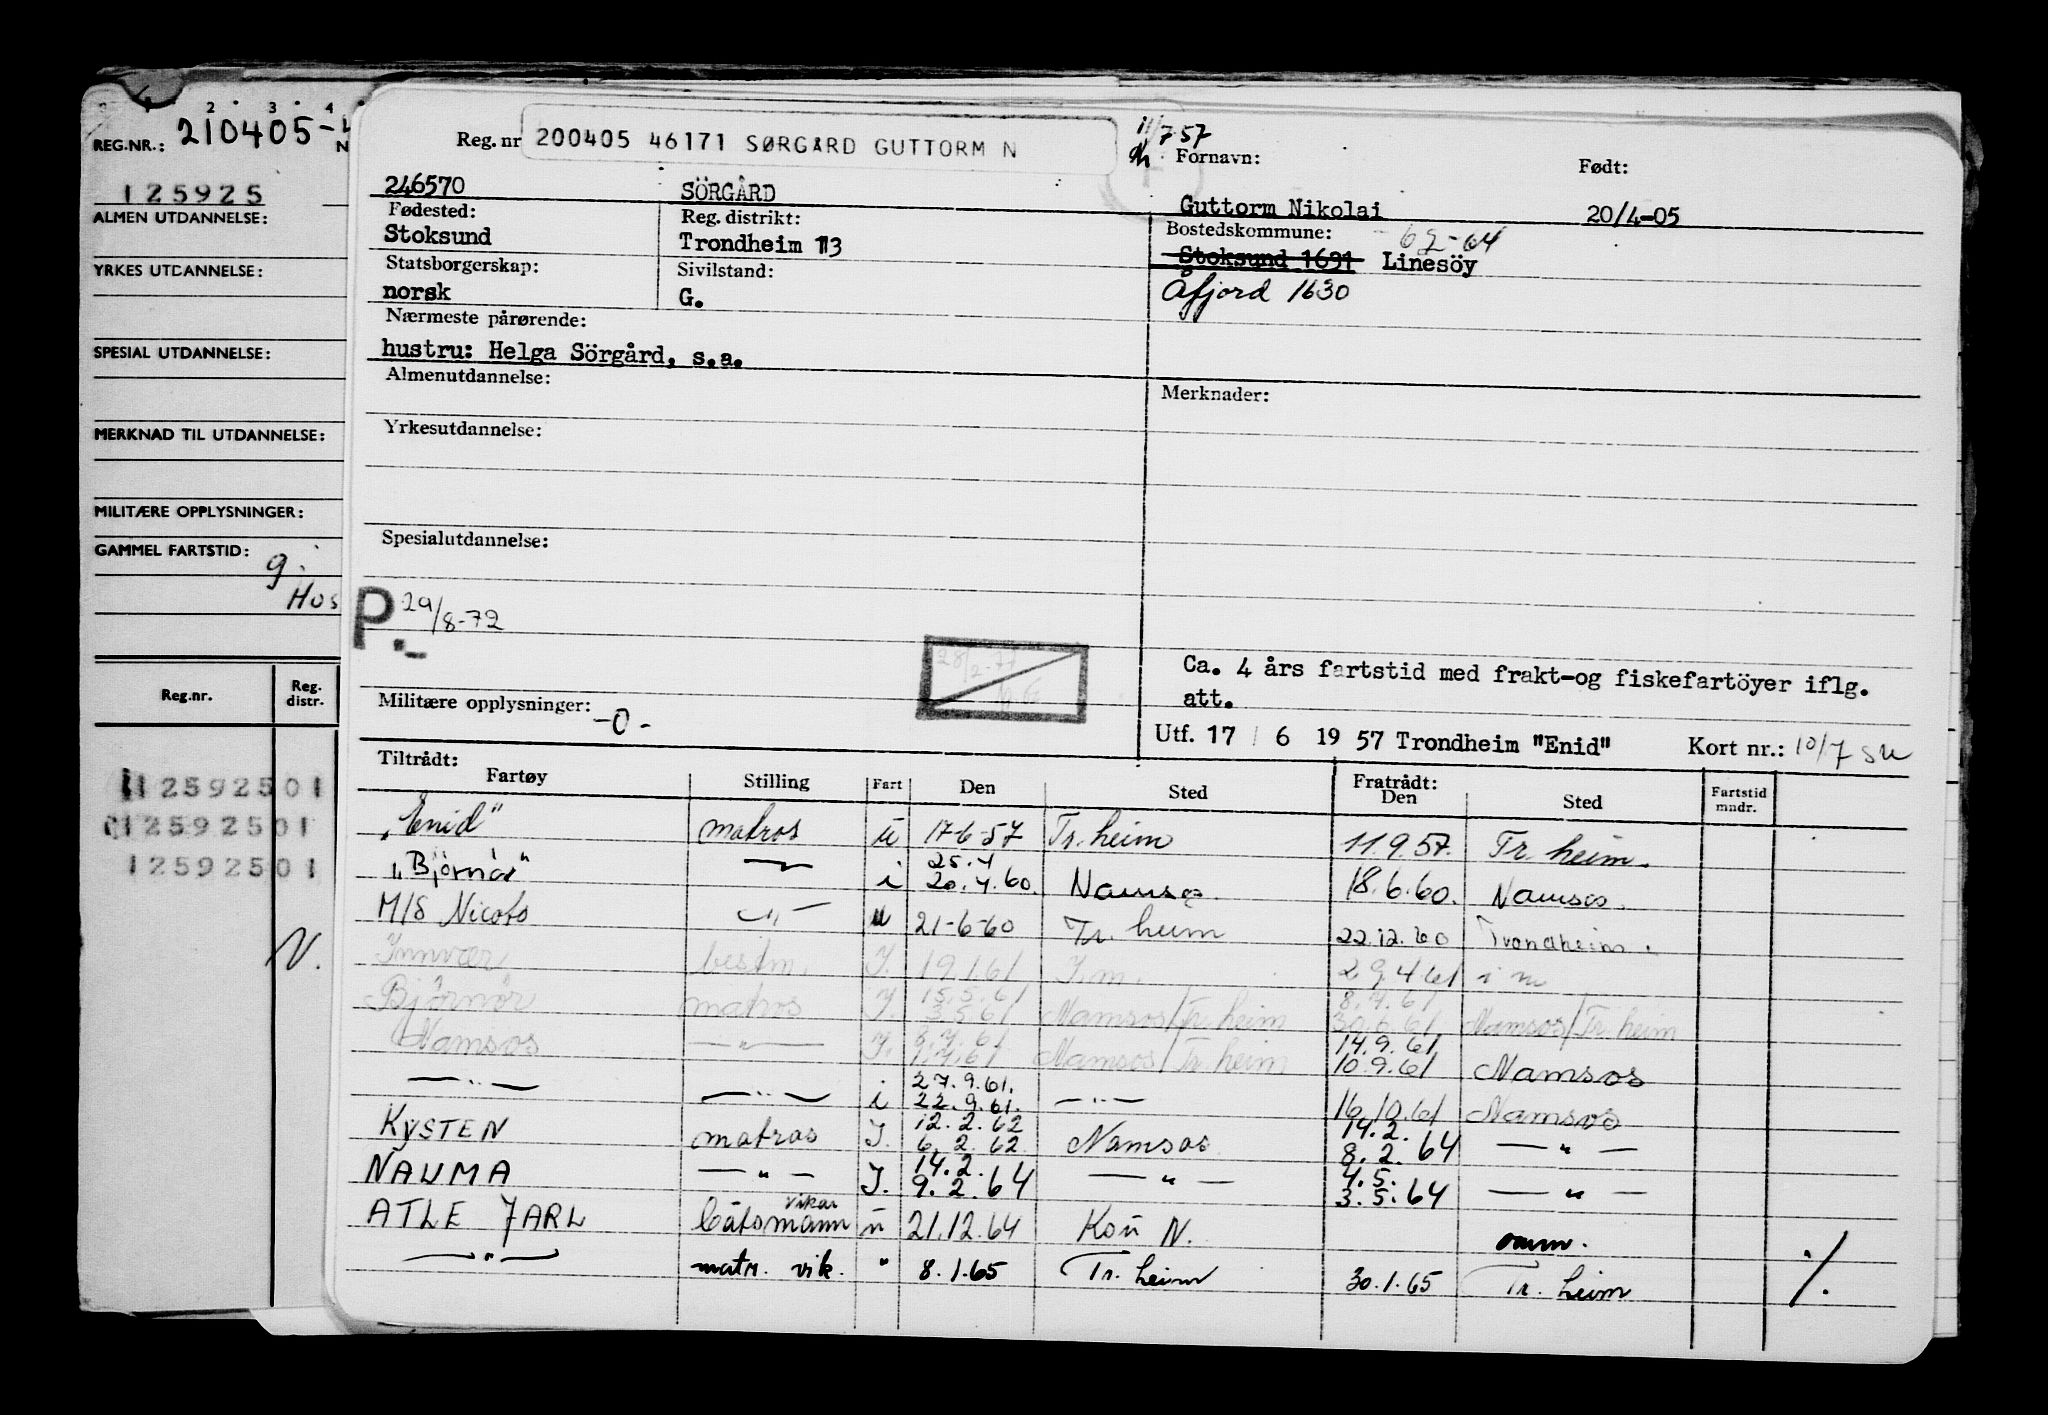 2 3 4
REG.NR.: 210405-
N
125925
ALMEN UTDANNELSE:
YRKES UTDANNELSE:
SPESIAL UTDANNELSE:
MERKNAD TIL UTDANNELSE:
MILITÆRE OPPLYSNINGER:
GAMMEL FARTSTID:
g.
Hos
Reg.nr. Reg. distr.
12592501
12592501
12592501
N.
Reg. nr 200405 46171 SØRGÅRD GUTTORM N
11/7 57
Fornavn: Født:
246570 SÖRGÅRD Guttorm Nikolai 20/4-05
Fødested: Reg. distrikt: Bostedskommune: 62-64
Stoksund Trondheim 113 Stoksund 1631 Linesöy
Statsborgerskap: Sivilstand: Åfjord 1630
norsk G.
Nærmeste pårørende:
hustru: Helga Sörgård, s.a.
Almenutdannelse: Merknader:
Yrkesutdannelse:
Spesialutdannelse:
P.- 29/8-72
28/2-77
Ca. 4 års fartstid med frakt-og fiskefartöyer iflg.
att.
Militære opplysninger: -0-
Utf. 17 / 6 19 57 Trondheim "Enid" Kort nr.: 10/7 su
Tiltrådt: Fratrådt:
Fartøy Stilling Fart Den Sted Den Sted Fartstid mndr.
"Enid" matros ü 17-6-57 Tr. heim 11.9.57. Tr. heim.
"Björnör" — i 25.4 20.4.60. Namsos 18.6.60. Namsos.
M/S Nicoto —"— u 21-6-60 Tr. heim 22.12.60 Trondheim.
Innvær bestm. I. 19.1.61 I.m. 29.4.61 i m
Björnör matros I. 15.5.61 3.5.61 Namsos/Tr. heim 8.7.61 30.6.61 Namsos/Tr. heim
Namsos —"— I. 8.7.61 1.7.61 Namsos/Tr. heim 14.9.61 10.9.61 Namsos
—"— —"— i 27.9.61. 22.9.61. —"— 16.10.61 Namsos
KYSTEN matros I. 12.2.62 6.2.62 Namsos 14.2. 8.2.64 —"—
NAUMA —"— I. 14.2. 9.2.64 —"— 4.5. 3.5.64 —"—
ATLE JARL båtsmann vikar ü 21.12.64 Kou N. omm.
—"— matr. vik. " 8.1.65 Tr. heim 30.1.65 Tr. heim ./.